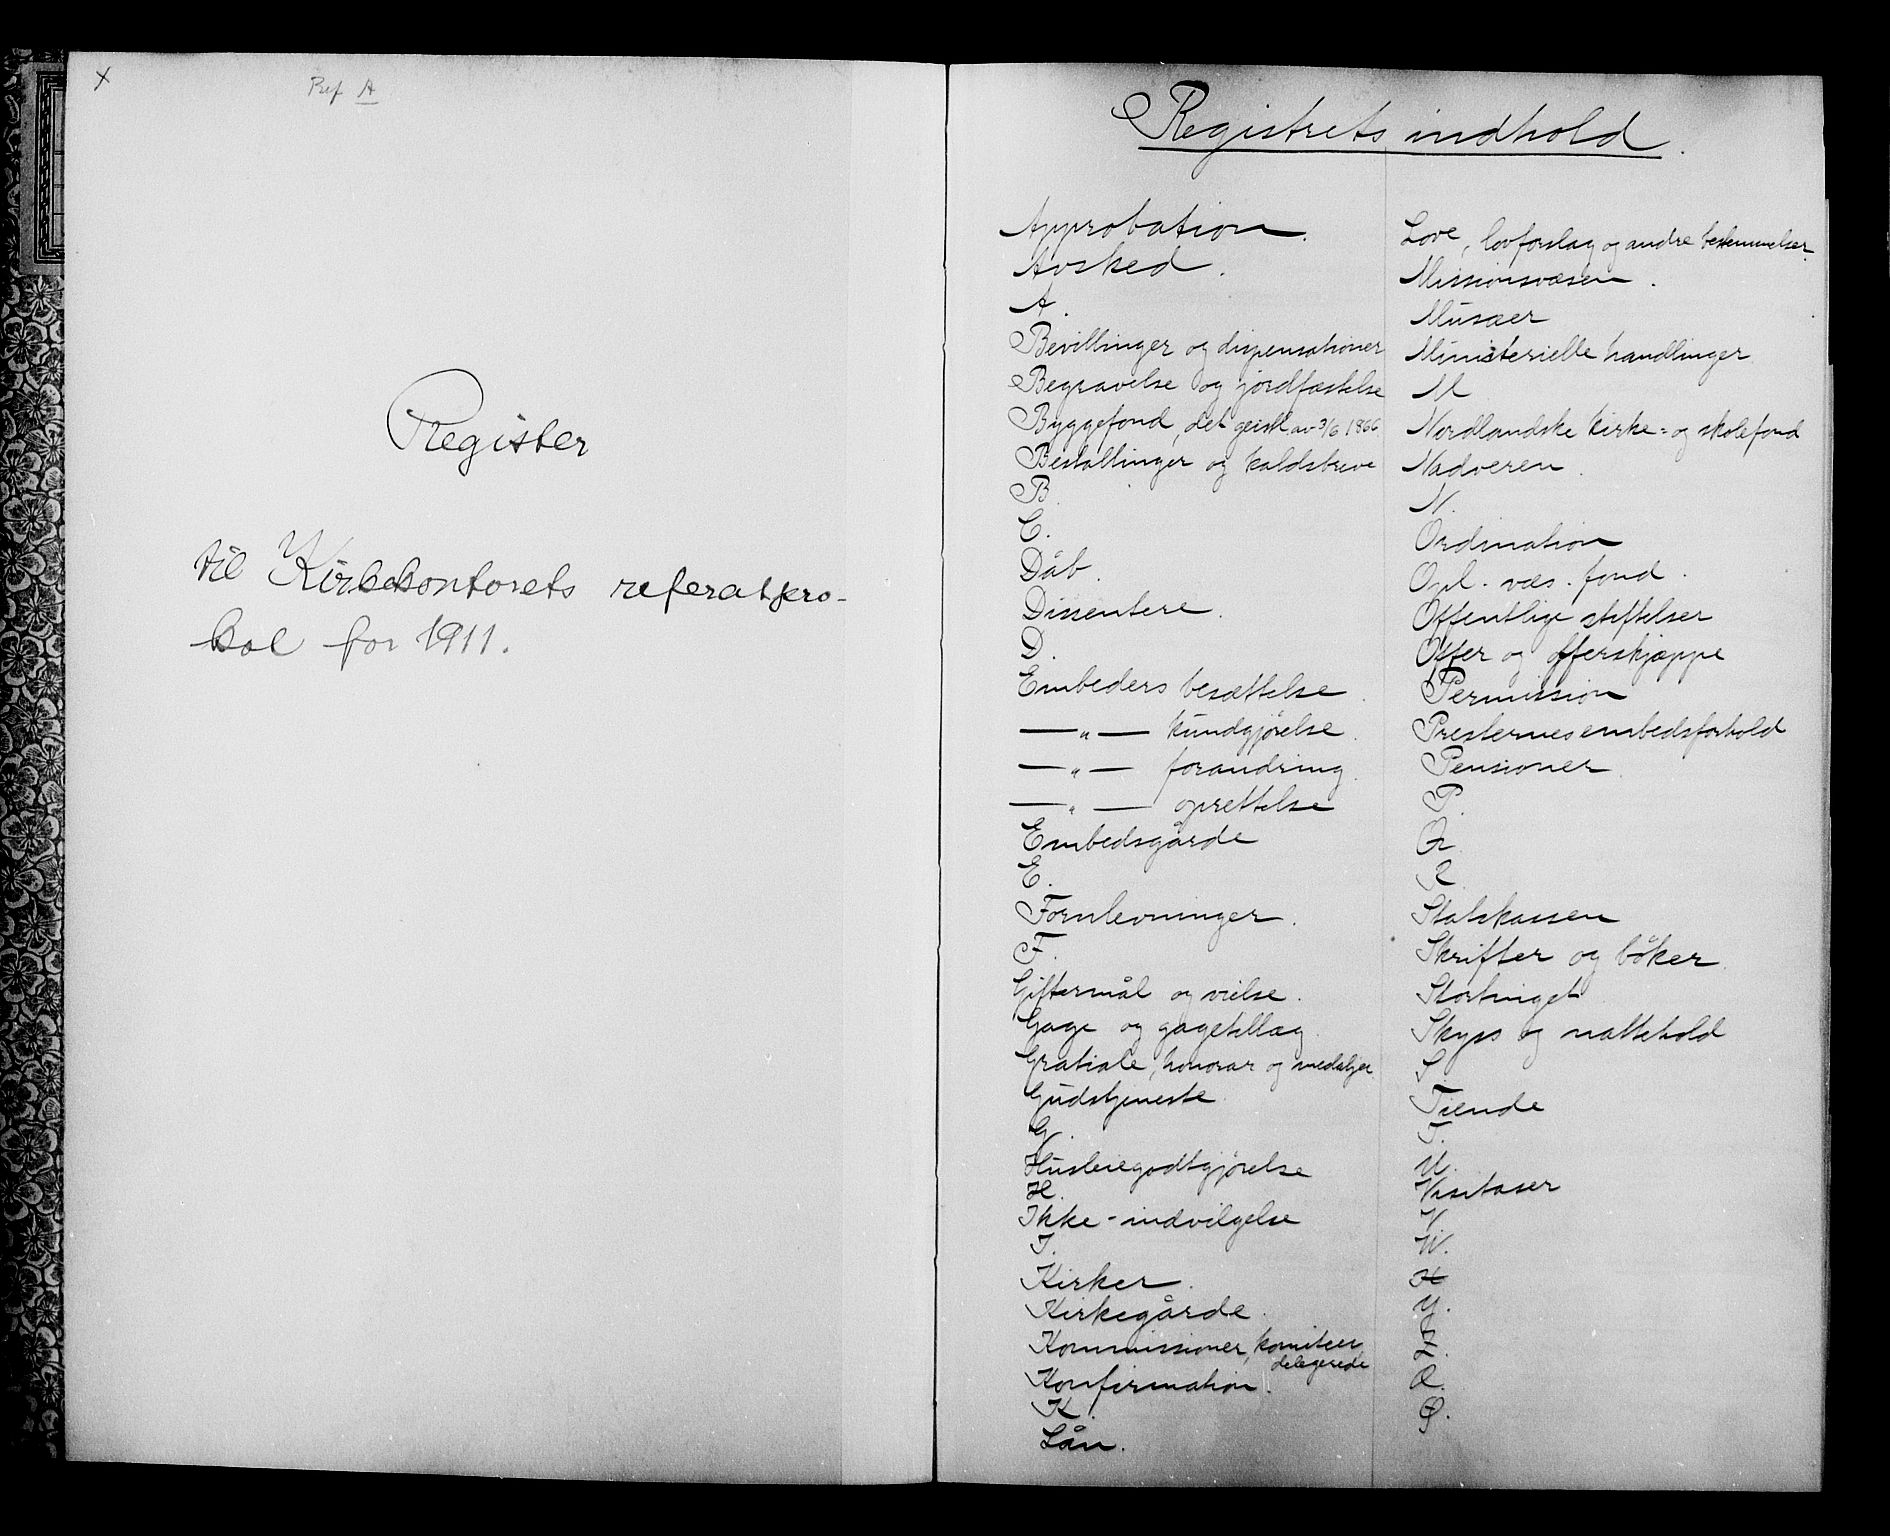 x
Ref A
Register
til Kirkekontorets referatpro-
kol for 1911.
Registrets indhold.
Approbation.
Avsked.
A.
Bevillinger og dispensationer
Begravelse og jordfæstelse
Byggefond, det geistl av 3/6 1866.
Bestallinger og kaldsbreve
B.
C.
Dåb.
Dissentere.
D.
Embeders besættelse.
—„— kundgjørelse.
—„— forandring.
—„— oprettelse
Embedsgårde
E.
Fornlevninger.
F.
Giftermål og vielse.
Gage og gagetillæg.
Gratiale, honorar og medaljer.
Gudstjeneste.
G.
Husleiegodtgjørelse
H.
Ikke-indvilgelse
I.
Kirker.
Kirkegårde.
Kommissioner, komiteer,
delegerede
Konfirmation.
K.
Lån.
Love, lovforslag og andre bestemmelser.
Missionsvæsen.
Musæer
Ministerielle handlinger
M
Nordlandske kirke- og skolefond
Nadveren.
N.
Ordination
Opl. væs. fond.
Offentlige stiftelser
Offer og offerskjæppe
Permission
Presternes embedsforhold
Pensioner.
P.
Q.
R.
Statskassen
Skrifter og bøker.
Stortinget
Skyss og nattehold
S.
Tiende
T.
U.
Visitaser
V
W.
X
Y.
Z.
Æ.
Ø.